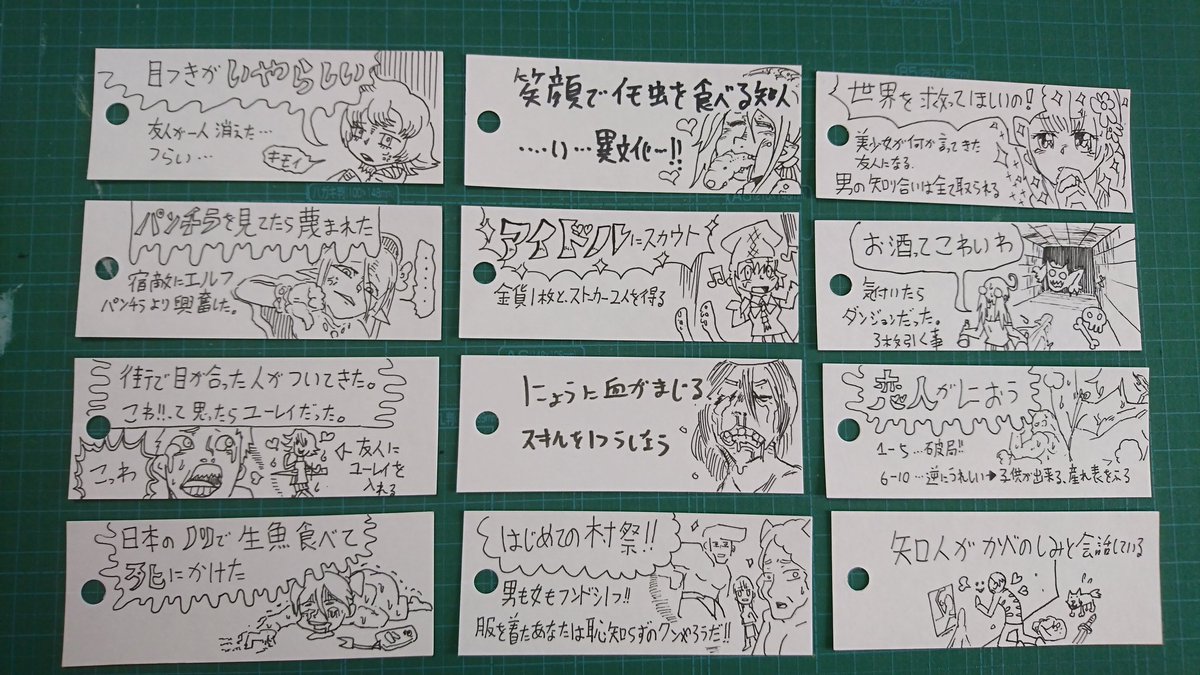 目つきがいやらしい
友人が一人消えた…
つらい…
キモイ
笑顔でイモ虫を食べる知人
……い…異文化〜!!
世界を救ってほしいの!
美少女が何か言ってきた
友人になる.
男の知り合いは全て取られる
パンチラを見てたら蔑まれた
宿敵にエルフ
パンチラより興奮した。
アイドルにスカウト
金貨1枚と、ストーカー2人を得る
お酒ってこわいわ
気付いたら
ダンジョンだった。
3枚引く事
街で目が合った人がついてきた。
こわ!!..て思ったらユーレイだった。
こっわ
←友人に
ユーレイを
入れる
にょうに血がまじる
スキルを1つうしなう
恋人がにおう
1-5…破局!!
6-10…逆にうれしい→子供が出来る、産れ表をふる
日本のノリで生魚食べて
死にかけた
はじめての村祭!!
男も女もフンドシ1つ!!
服を着たあなたは恥知らずのクソやろうだ!!
知人がかべのしみと会話している